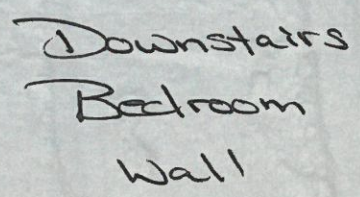 Downstairs
Bedroom
Wall